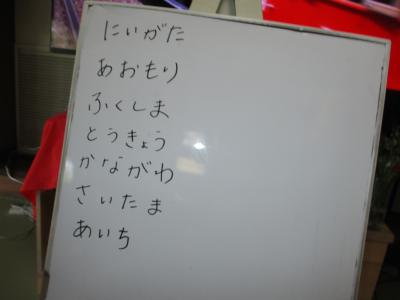 にいがた
あおもり
ふくしま
とうきょう
かながわ
さいたま
あいち